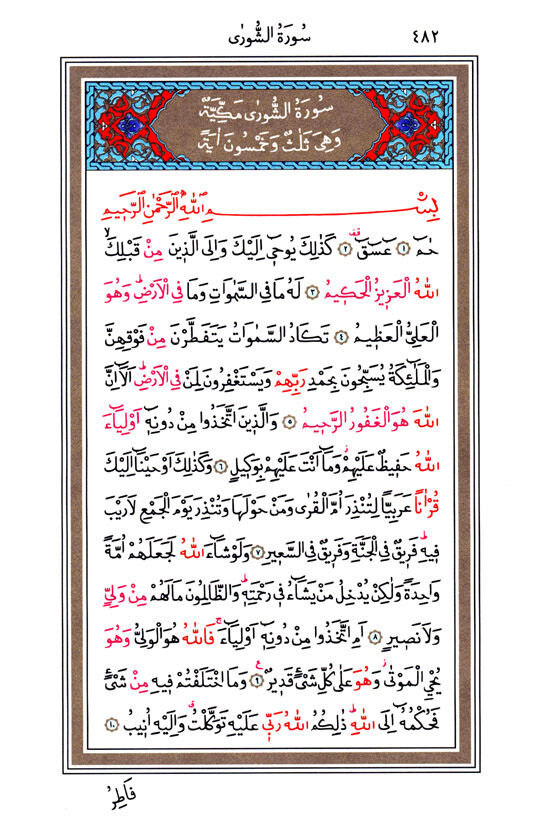 ٤٨٢ سُورَةُ الشُّورٰى
سُورَةُ الشُّورٰى مَكِّيَّةٌ
وَهِيَ ثَلٰثٌ وَخَمْسُونَ اٰيَةً
بِسْمِ اللّٰهِ الرَّحْمٰنِ الرَّحٖيمِ
حٰمٓ ﴿١﴾ عٓسٓقٓ ﴿٢﴾ كَذٰلِكَ يُوحٖٓي اِلَيْكَ وَاِلَى الَّذٖينَ مِنْ قَبْلِكَۙ
اللّٰهُ الْعَزٖيزُ الْحَكٖيمُ ﴿٣﴾ لَهُ مَا فِي السَّمٰوَاتِ وَمَا فِي الْاَرْضِؕ وَهُوَ
الْعَلِيُّ الْعَظٖيمُ ﴿٤﴾ تَكَادُ السَّمٰوَاتُ يَتَفَطَّرْنَ مِنْ فَوْقِهِنَّ
وَالْمَلٰٓئِكَةُ يُسَبِّحُونَ بِحَمْدِ رَبِّهِمْ وَيَسْتَغْفِرُونَ لِمَنْ فِي الْاَرْضِؕ اَلَٓا اِنَّ
اللّٰهَ هُوَ الْغَفُورُ الرَّحٖيمُ ﴿٥﴾ وَالَّذٖينَ اتَّخَذُوا مِنْ دُونِهٖٓ اَوْلِيَٓاءَ
اللّٰهُ حَفٖيظٌ عَلَيْهِمْؗ وَمَٓا اَنْتَ عَلَيْهِمْ بِوَكٖيلٍ ﴿٦﴾ وَكَذٰلِكَ اَوْحَيْنَٓا اِلَيْكَ
قُرْاٰناً عَرَبِياًّ لِتُنْذِرَ اُمَّ الْقُرٰى وَمَنْ حَوْلَهَا وَتُنْذِرَ يَوْمَ الْجَمْعِ لَا رَيْبَ
فٖيهِؕ فَرٖيقٌ فِي الْجَنَّةِ وَفَرٖيقٌ فِي السَّعٖيرِ ﴿٧﴾ وَلَوْ شَٓاءَ اللّٰهُ لَجَعَلَهُمْ اُمَّةً
وَاحِدَةً وَلٰكِنْ يُدْخِلُ مَنْ يَشَٓاءُ فٖي رَحْمَتِهٖؕ وَالظَّالِمُونَ مَا لَهُمْ مِنْ وَلِيٍّ
وَلَا نَصٖيرٍ ﴿٨﴾ اَمِ اتَّخَذُوا مِنْ دُونِهٖٓ اَوْلِيَٓاءَۚ فَاللّٰهُ هُوَ الْوَلِيُّ وَهُوَ
يُحْيِ الْمَوْتٰىؗ وَهُوَ عَلٰى كُلِّ شَيْءٍ قَدٖيرٌ ﴿٩﴾ وَمَا اخْتَلَفْتُمْ فٖيهِ مِنْ شَيْءٍ
فَحُكْمُهُٓ اِلَى اللّٰهِؕ ذٰلِكُمُ اللّٰهُ رَبّٖي عَلَيْهِ تَوَكَّلْتُۗ وَاِلَيْهِ اُنٖيبُ ﴿١٠﴾
فَاطِرُ